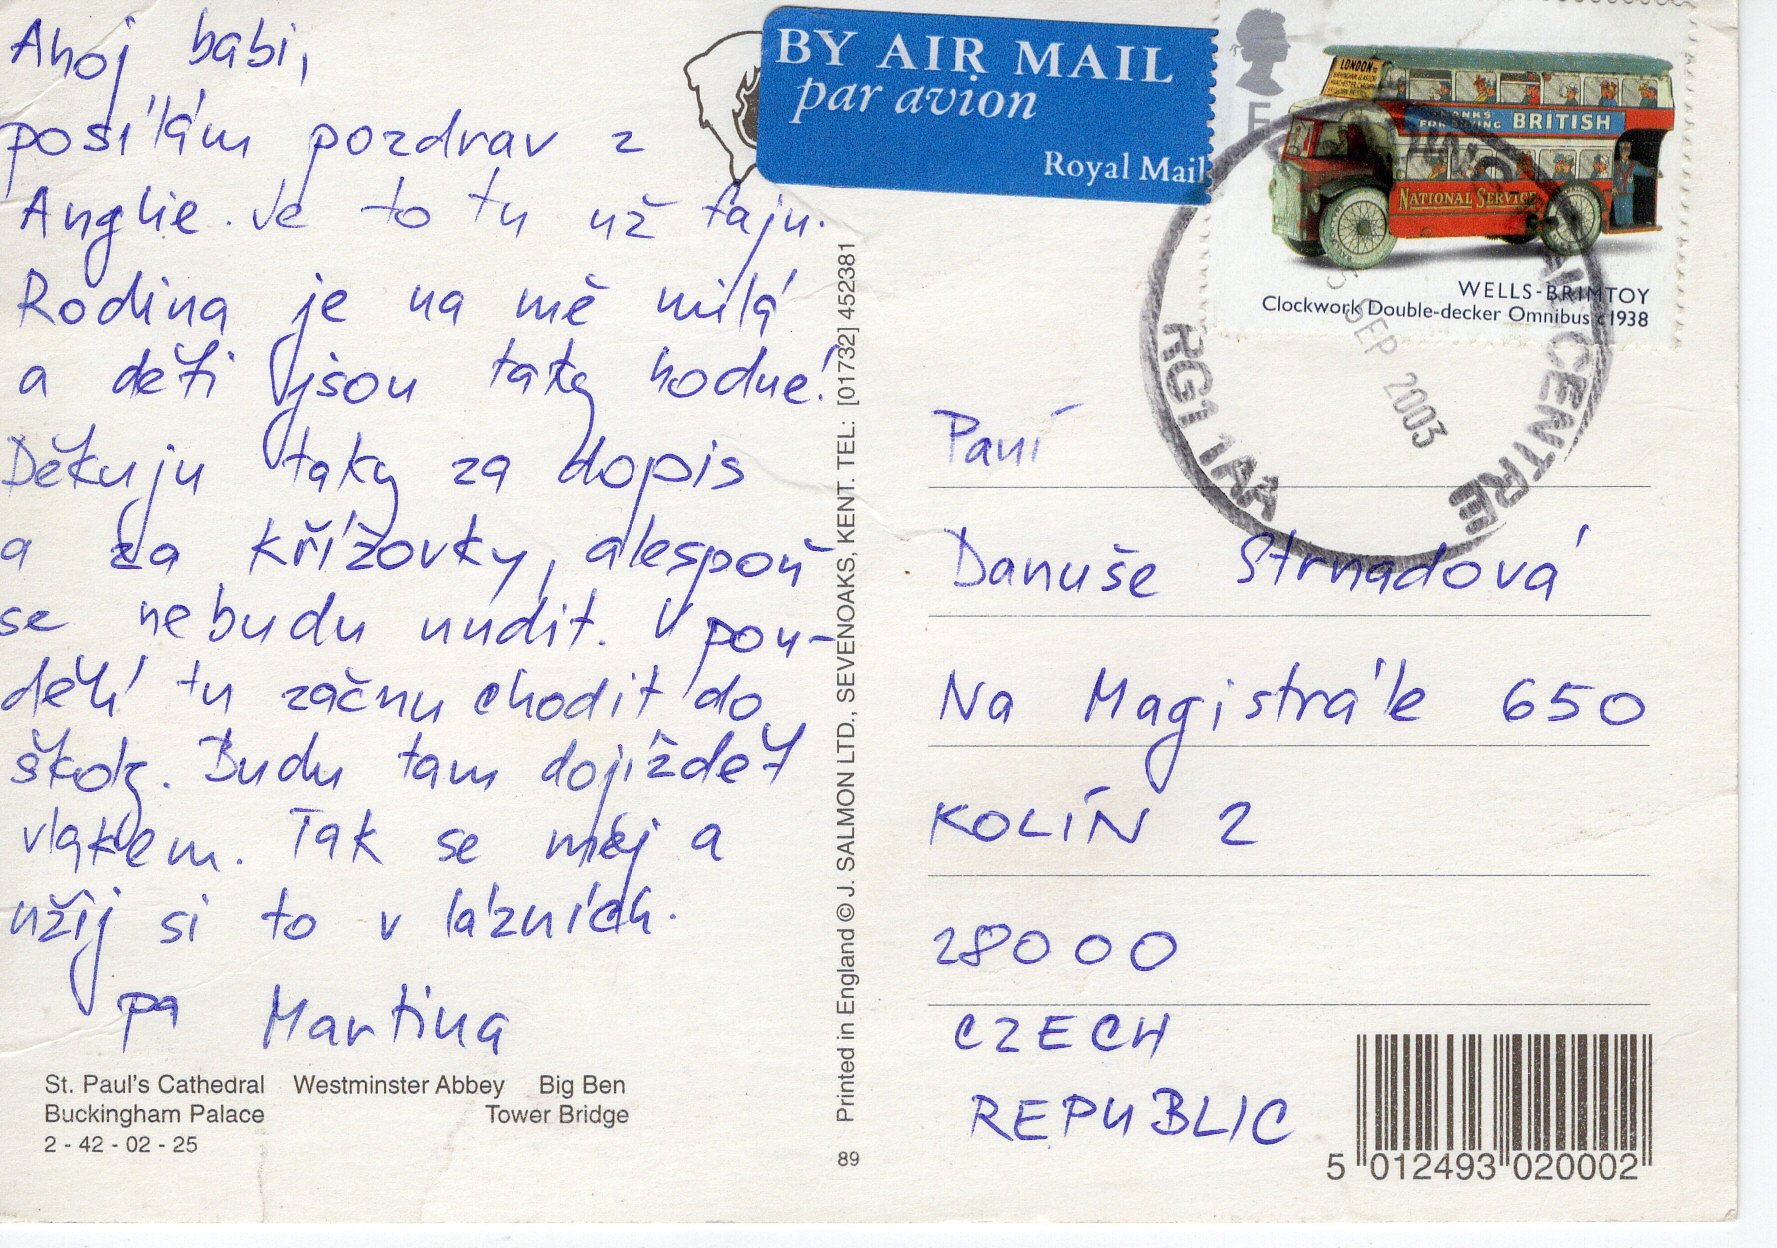 Ahoj babi,
posílám pozdrav z
Anglie. Je to tu už fajn.
Rodina je na mě milá
a děti jsou taky hodné!
Děkuju taky za dopis
a za křížovky, alespoň
se nebudu nudit. V pon-
dělí tu začnu chodit do
školy. Budu tam dojíždět
vlakem. Tak se měj a
užij si to v lázních.
pa Martina
St. Paul's Cathedral Westminster Abbey Big Ben
Buckingham Palace Tower Bridge
2 - 42 - 02 - 25
Printed in England © J. SALMON LTD., SEVENOAKS, KENT. TEL: [01732] 452381
89
BY AIR MAIL
par avion
Royal Mail
E
LONDON
BRITISH
NATIONAL SERVICE
WELLS-BRIMTOY
Clockwork Double-decker Omnibus c1938
MAIL CENTRE
SEP 2003
RG1 1AA
Paní
Danuše Strnadová
Na Magistrále 650
KOLÍN 2
28000
CZECH
REPUBLIC
5 012493 020002